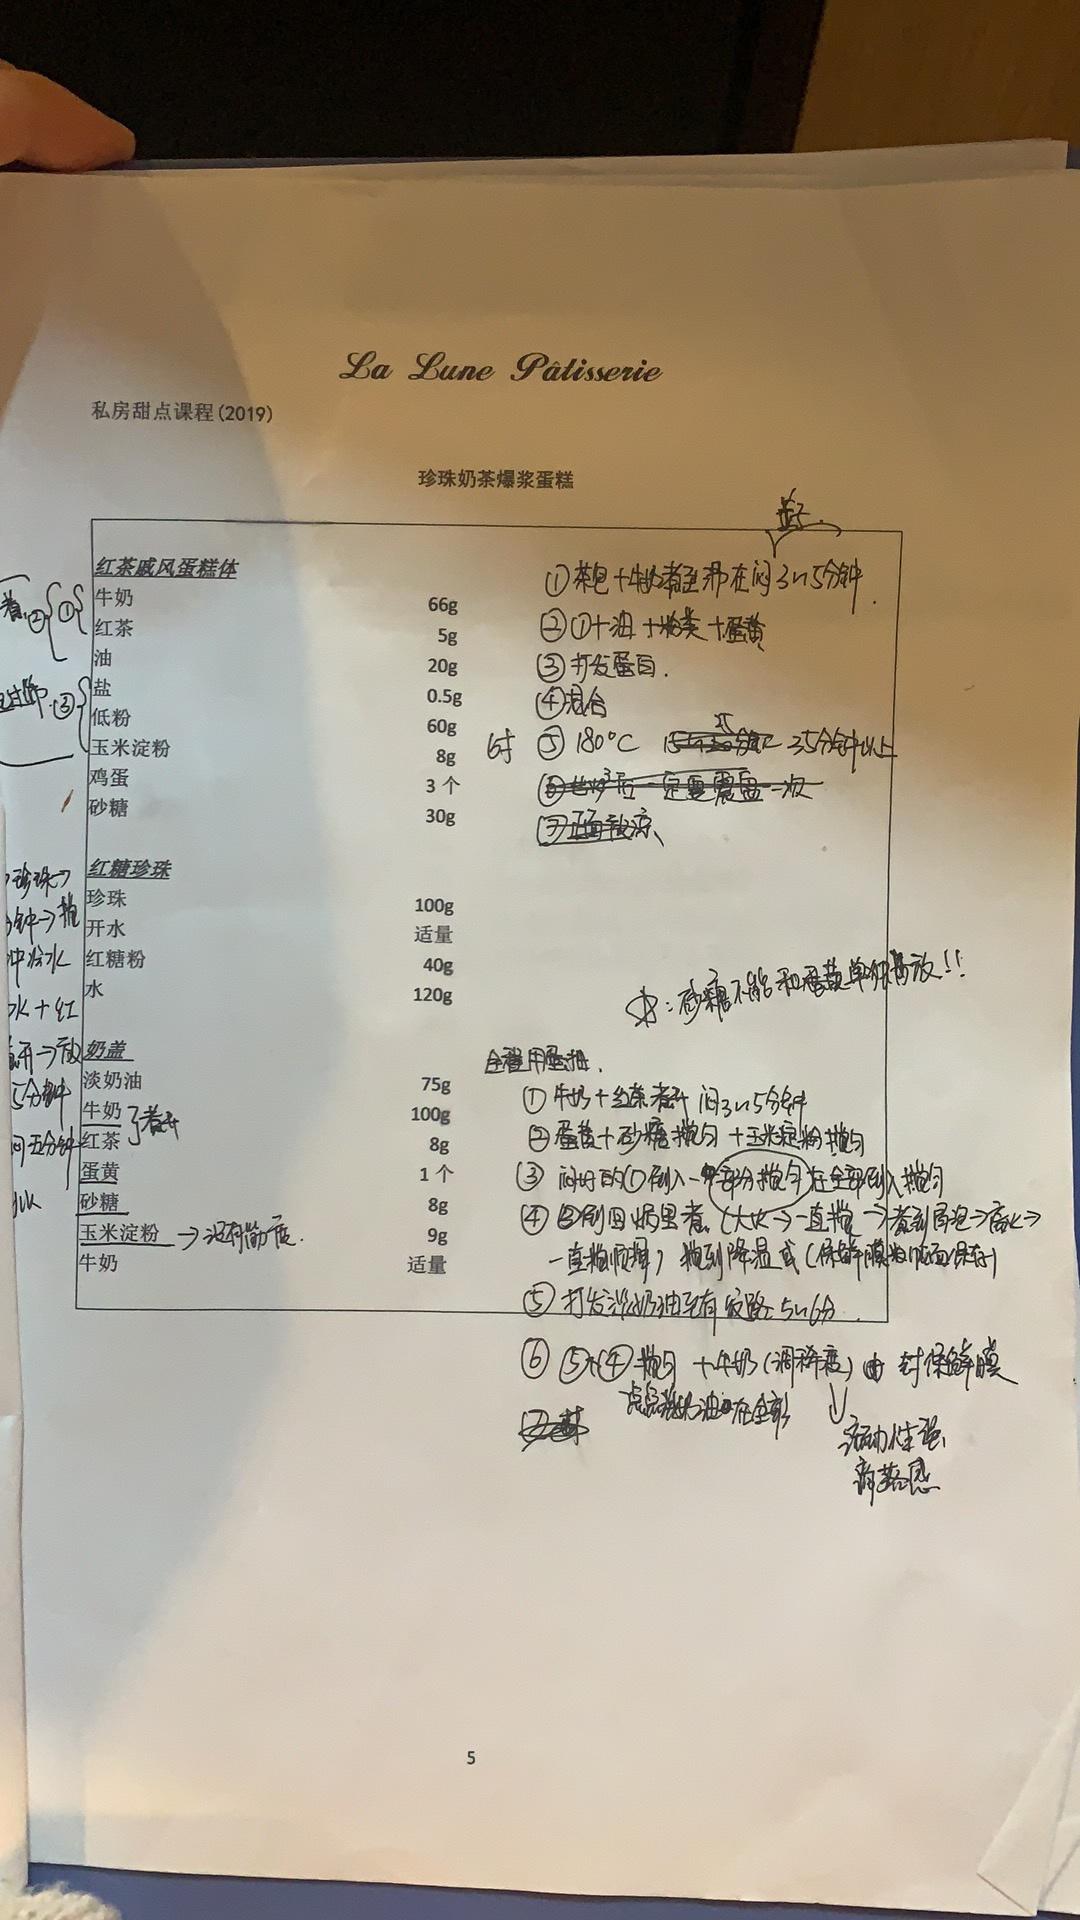 La Lune Pâtisserie
私房甜点课程(2019)
珍珠奶茶爆浆蛋糕
盖子.
红茶戚风蛋糕体
牛奶 66g
红茶 5g
油 20g
盐 0.5g
低粉 60g
玉米淀粉 8g
鸡蛋 3 个
砂糖 30g
① 茶包+牛奶煮至沸在闷3~5分钟.
② ①+油+粉类+蛋黄
③ 打发蛋白.
④ 混合
6寸 ⑤ 180°C 35分钟以上
过筛.③
红糖珍珠
珍珠 100g
开水 适量
红糖粉 40g
水 120g
珍珠→
分钟→
冲冷水
水+红
煮开→放
5分钟
闷五分钟
:砂糖不能和蛋黄单独放!!
奶盖
淡奶油 75g
牛奶 100g
红茶 8g
蛋黄 1 个
砂糖 8g
玉米淀粉 9g
牛奶 适量
煮开
→没有筋度.
全程用蛋抽.
① 牛奶+红茶煮开 闷3~5分钟
② 蛋黄+砂糖搅匀+玉米淀粉搅匀
③ 闷好的①倒入一部分搅匀在全部倒入搅匀
④ 倒回奶里煮.(大火→一直搅→煮到冒泡→离火→
一直搅顺滑)搅到降温或(保鲜膜贴面保存)
⑤ 打发淡奶油至有纹路5~6分.
⑥ ⑤+④搅匀 +牛奶(调稀度) 封保鲜膜
流动性强、
滑落感
5